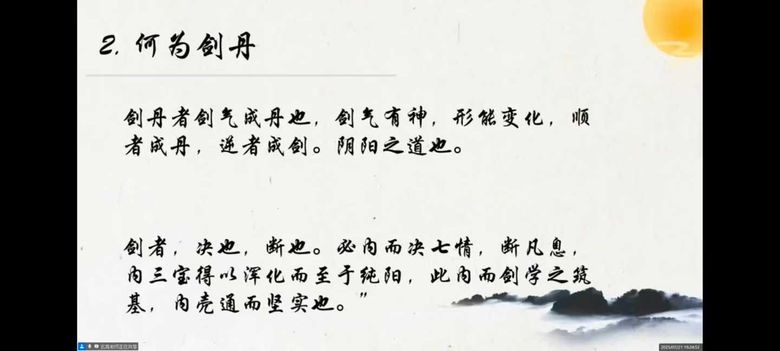 2. 何为剑丹
剑丹者剑气成丹也，剑气有神，形能变化，顺
者成丹，逆者成剑。阴阳之道也。
剑者，决也，断也。必内而决七情，断凡息，
内三宝得以浑化而至于纯阳，此内而剑学之筑
基，内壳通而坚实也。”